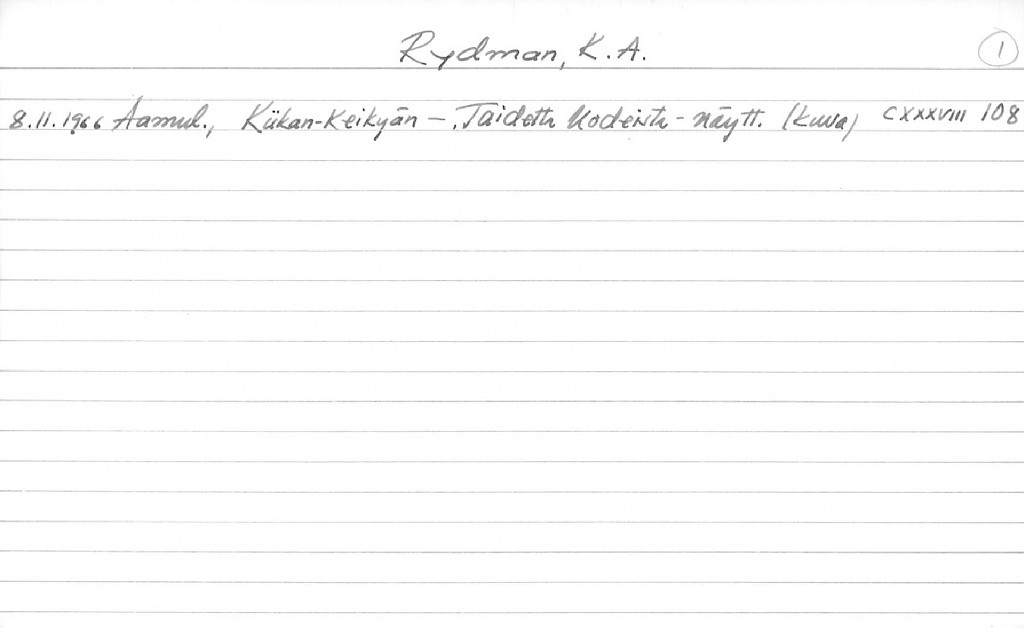 Rydman, K.A. 1
8.11.1966 Aamul., Kiikan-Keikyän - "Taidetta kodeista-näytt. (kuva) CXXXVIII 108